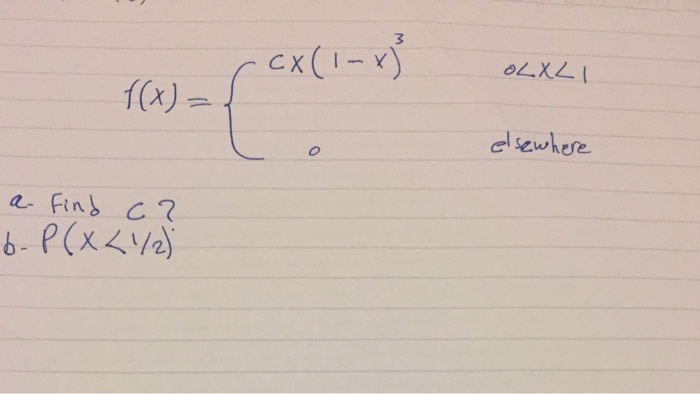 f(x) = { cx(1-x)³ 0<x<1
0 elsewhere
a- Find c?
b- P(X<1/2)